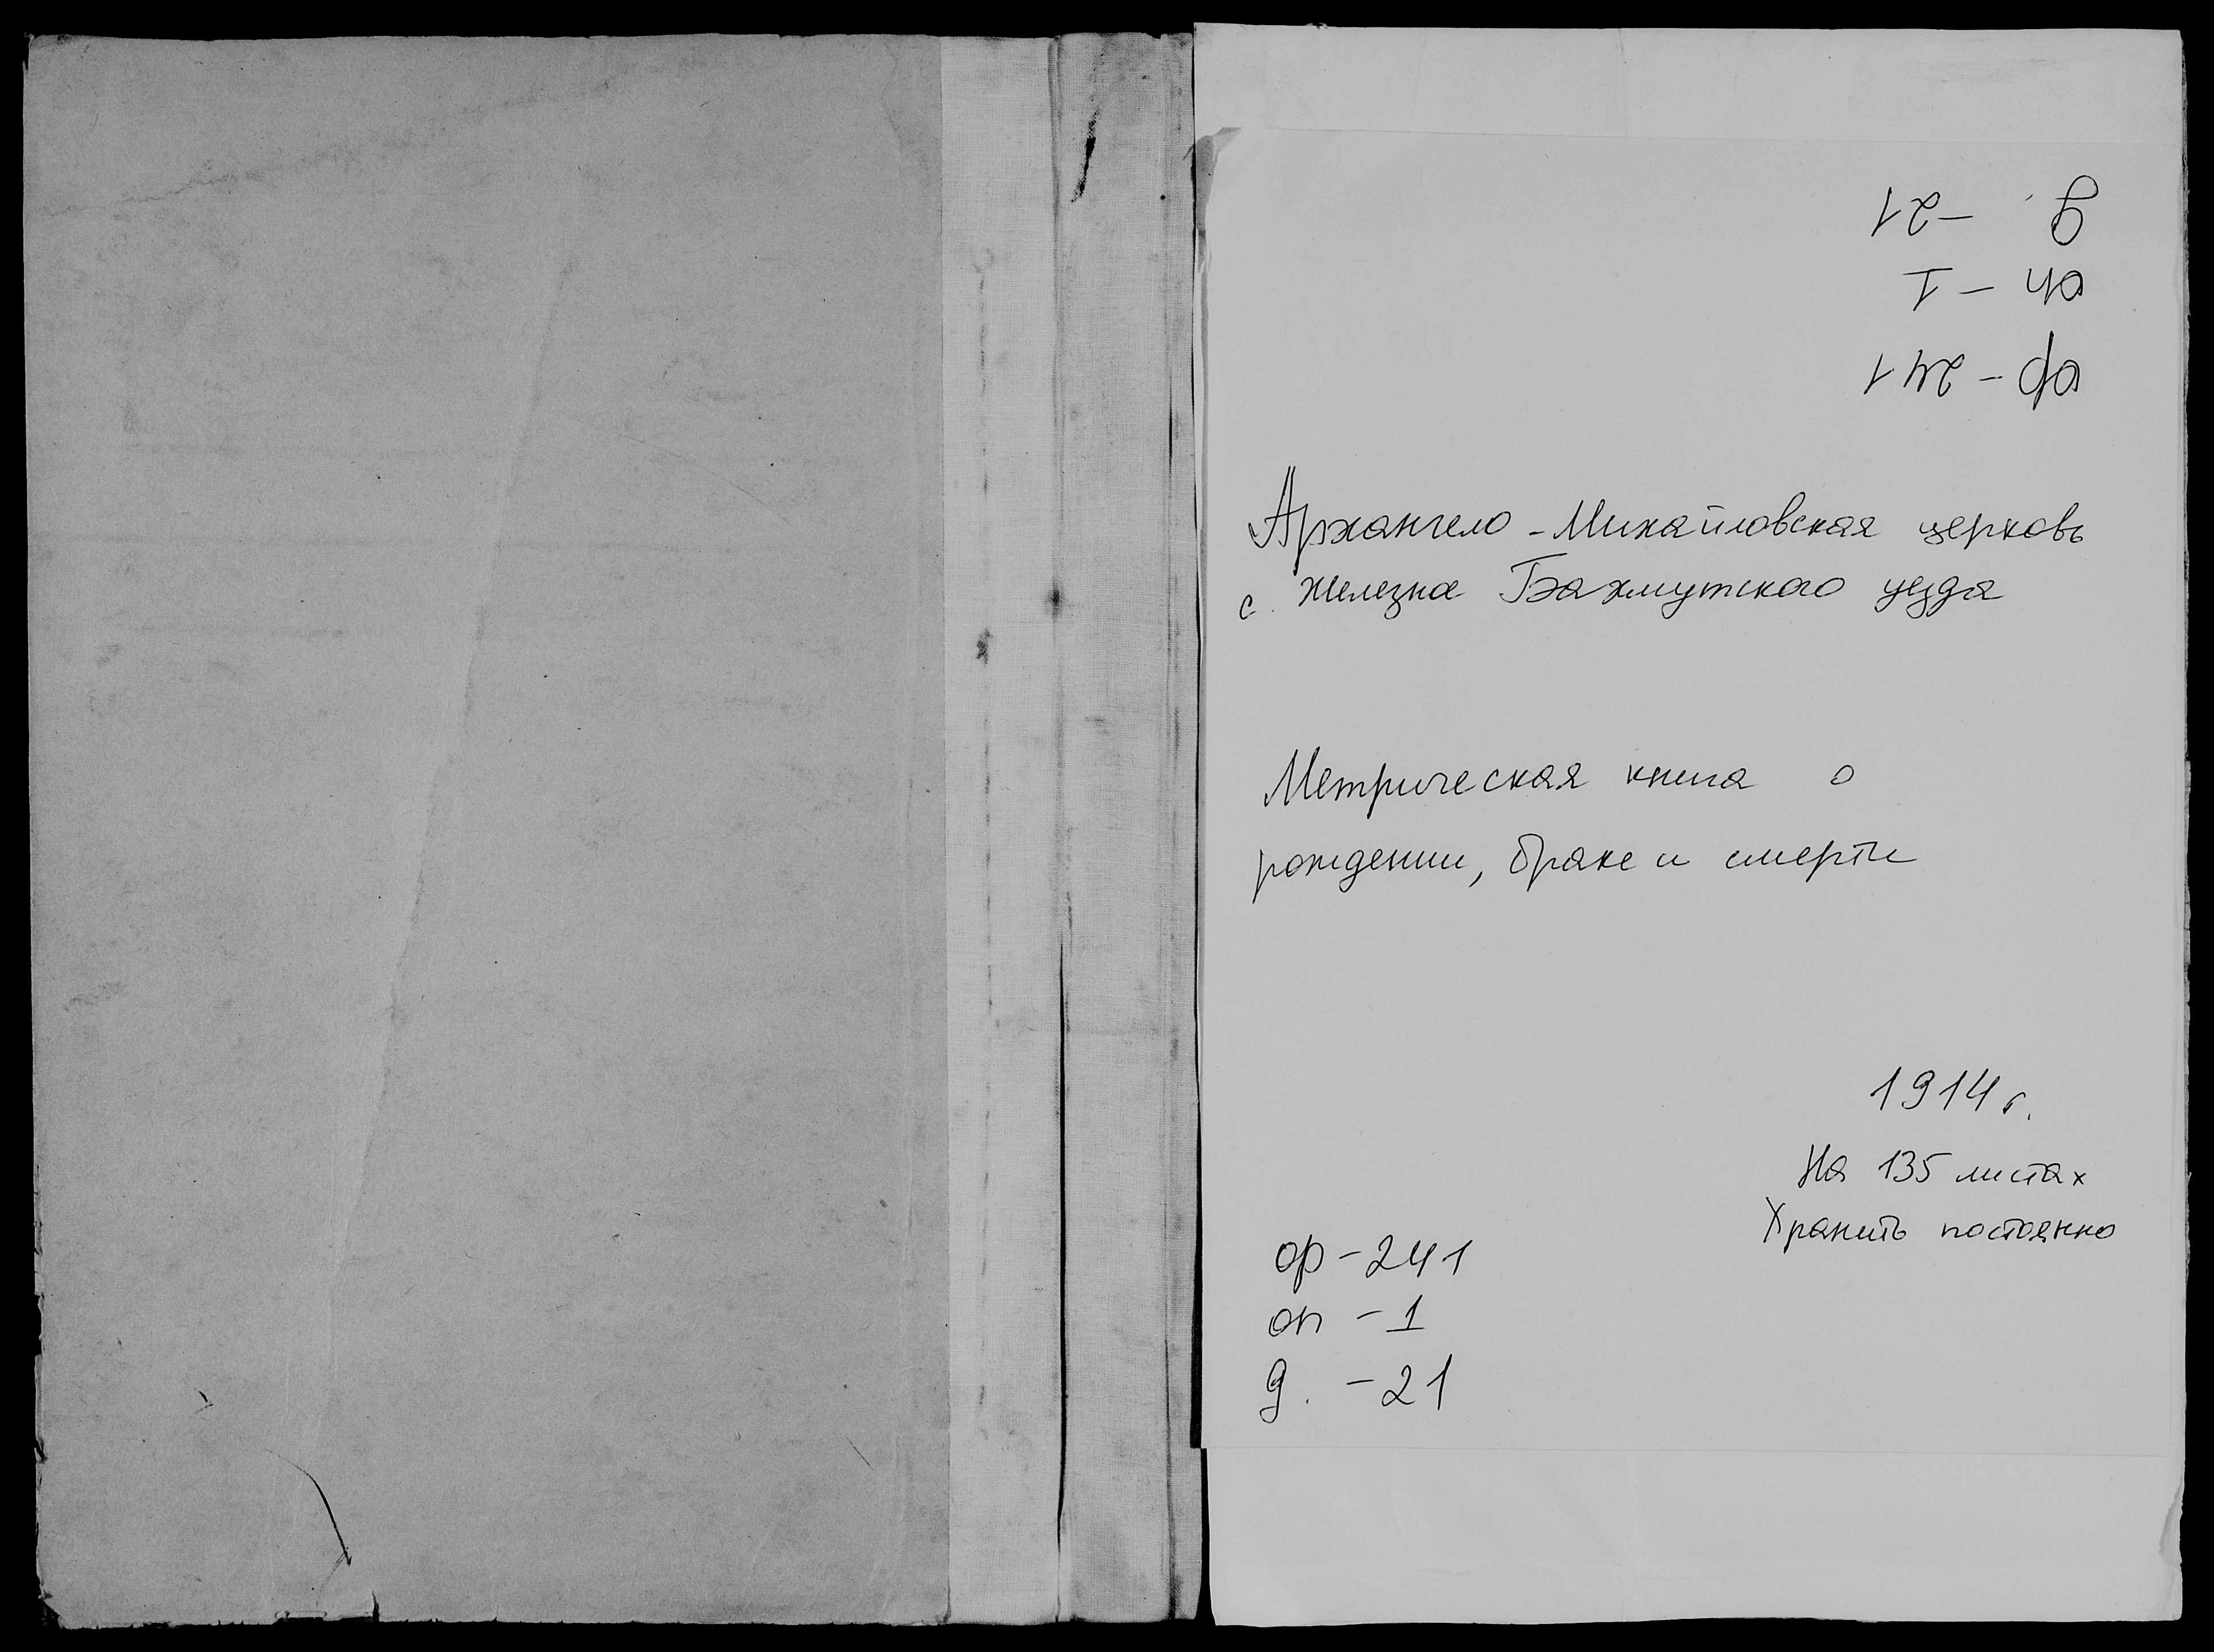 ф - 241
оп - 1
д. - 21
Архангело - Михайловская церковь
с. Железна Бахмутского уезда
Метрическая книга о
рождении, браке и смерти
1914 г.
На 135 листах
Хранить постоянно
ф - 241
оп - 1
д. - 21